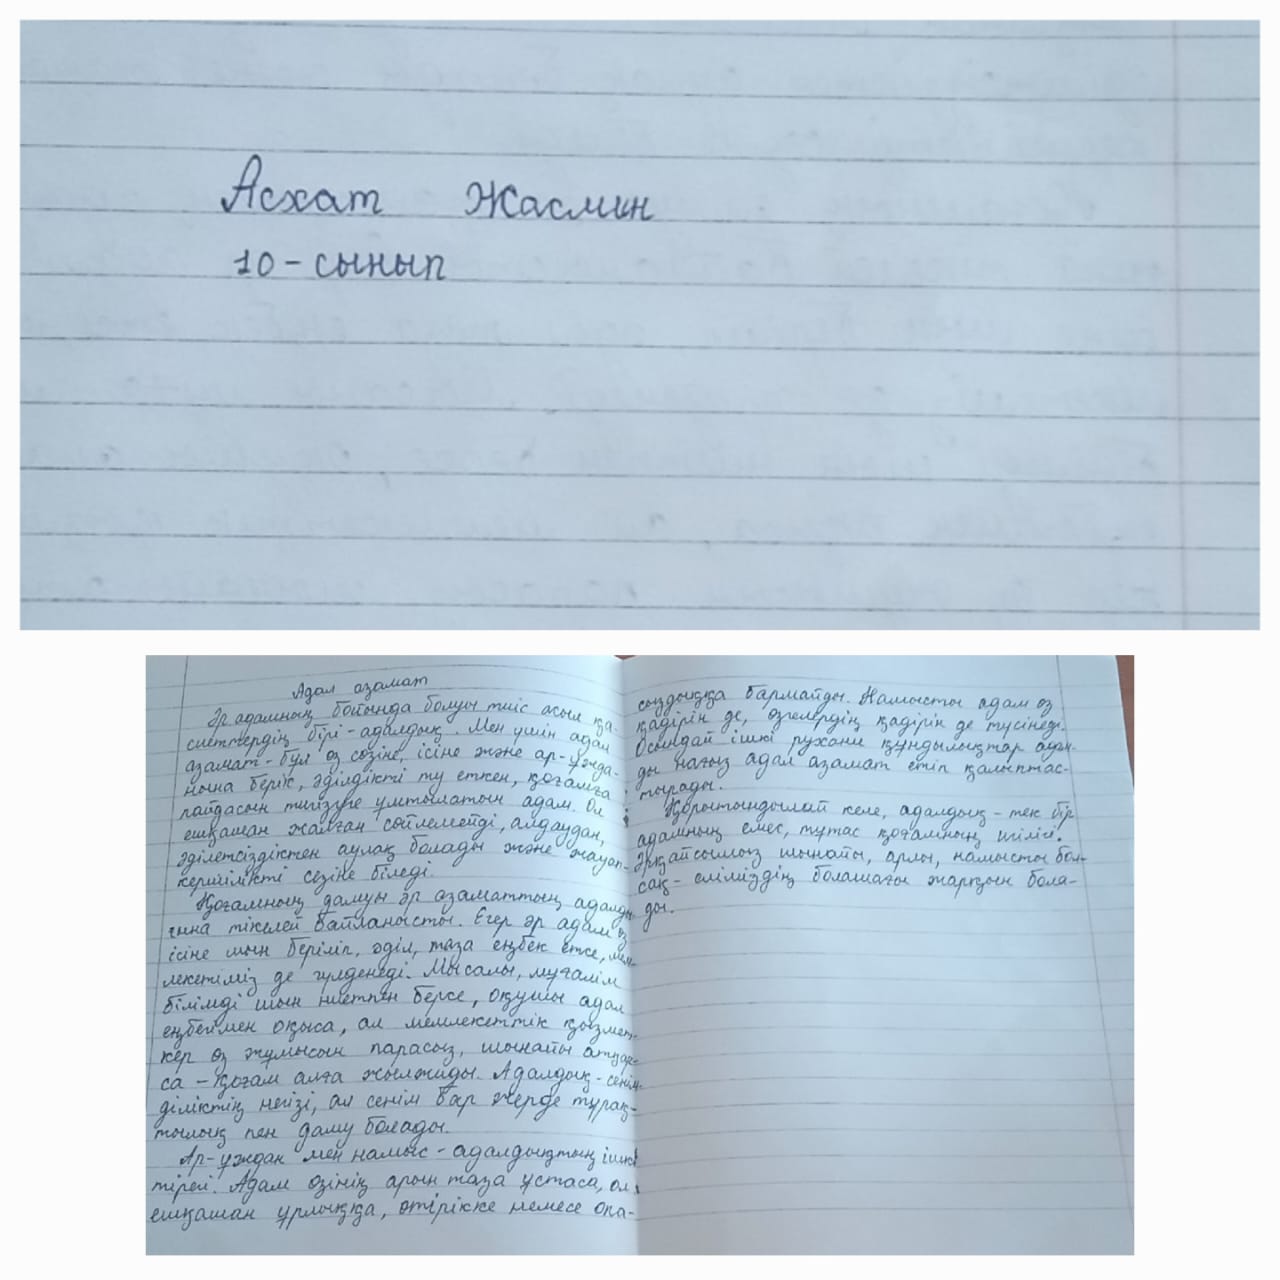 Асхат Жасмин
10-сынып
Адал азамат
Әр адамның бойында болуы тиіс асыл қа-
сиеттердің бірі - адалдық. Мен үшін адал
азамат - бұл өз сөзіне, ісіне және ар-ұжда-
нына берік, әділдікті ту еткен, қоғамға
пайдасын тигізуге ұмтылатын адам. Ол
ешқашан жалған сөйлемейді, алдаудан,
әділетсіздіктен аулақ болады және жауап-
кершілікті сезіне біледі.
Қоғамның дамуы әр азаматтың адалды-
ғына тікелей байланысты. Егер әр адам өз
ісіне шын беріліп, әділ, таза еңбек етсе, мем-
лекетіміз де гүлденеді. Мысалы, мұғалім
білімді шын ниетпен берсе, оқушы адал
еңбегімен оқыса, ал мемлекеттік қызмет-
кер өз жұмысын парасыз, шынайы атқар-
са - қоғам алға жылжиды. Адалдық - сенім-
діліктің негізі, ал сенім бар жерде тұрақ-
тылық пен даму болады.
Ар-ұждан мен намыс - адалдықтың ішкі
тірегі. Адам өзінің арын таза ұстаса, ол
ешқашан ұрлыққа, өтірікке немесе опа-
сыздыққа бармайды. Намысты адам өз
қадірін де, өзгелердің қадірін де түсінеді.
Осындай ішкі рухани құндылықтар адам-
ды нағыз адал азамат етіп қалыптас-
тырады.
Қорытындылай келе, адалдық - тек бір
адамның емес, тұтас қоғамның игілігі.
Әрқайсымыз шынайы, арлы, намысты бол-
сақ - еліміздің болашағы жарқын бола-
ды.